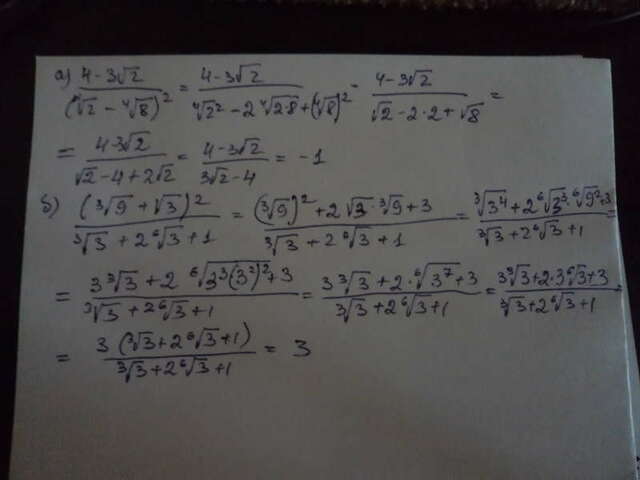 а) (4-3√2)/(∜2 - ∜8)² = (4-3√2)/(∜2² - 2∜2·8 + (∜8)²) = (4-3√2)/(√2 - 2·2 + √8) =
= (4-3√2)/(√2 - 4 + 2√2) = (4-3√2)/(3√2 - 4) = -1
б) (∛9 + √3)²/(∛3 + 2⁶√3 + 1) = ((∛9)² + 2√3·∛9 + 3)/(∛3 + 2⁶√3 + 1) = (∛3⁴ + 2⁶√3³·⁶√9² + 3)/(∛3 + 2⁶√3 + 1) =
= (3∛3 + 2 ⁶√3³(3²)² + 3)/(∛3 + 2⁶√3 + 1) = (3∛3 + 2·⁶√3⁷ + 3)/(∛3 + 2⁶√3 + 1) = (3∛3 + 2·3⁶√3 + 3)/(∛3 + 2⁶√3 + 1) =
= 3(∛3 + 2⁶√3 + 1)/(∛3 + 2⁶√3 + 1) = 3